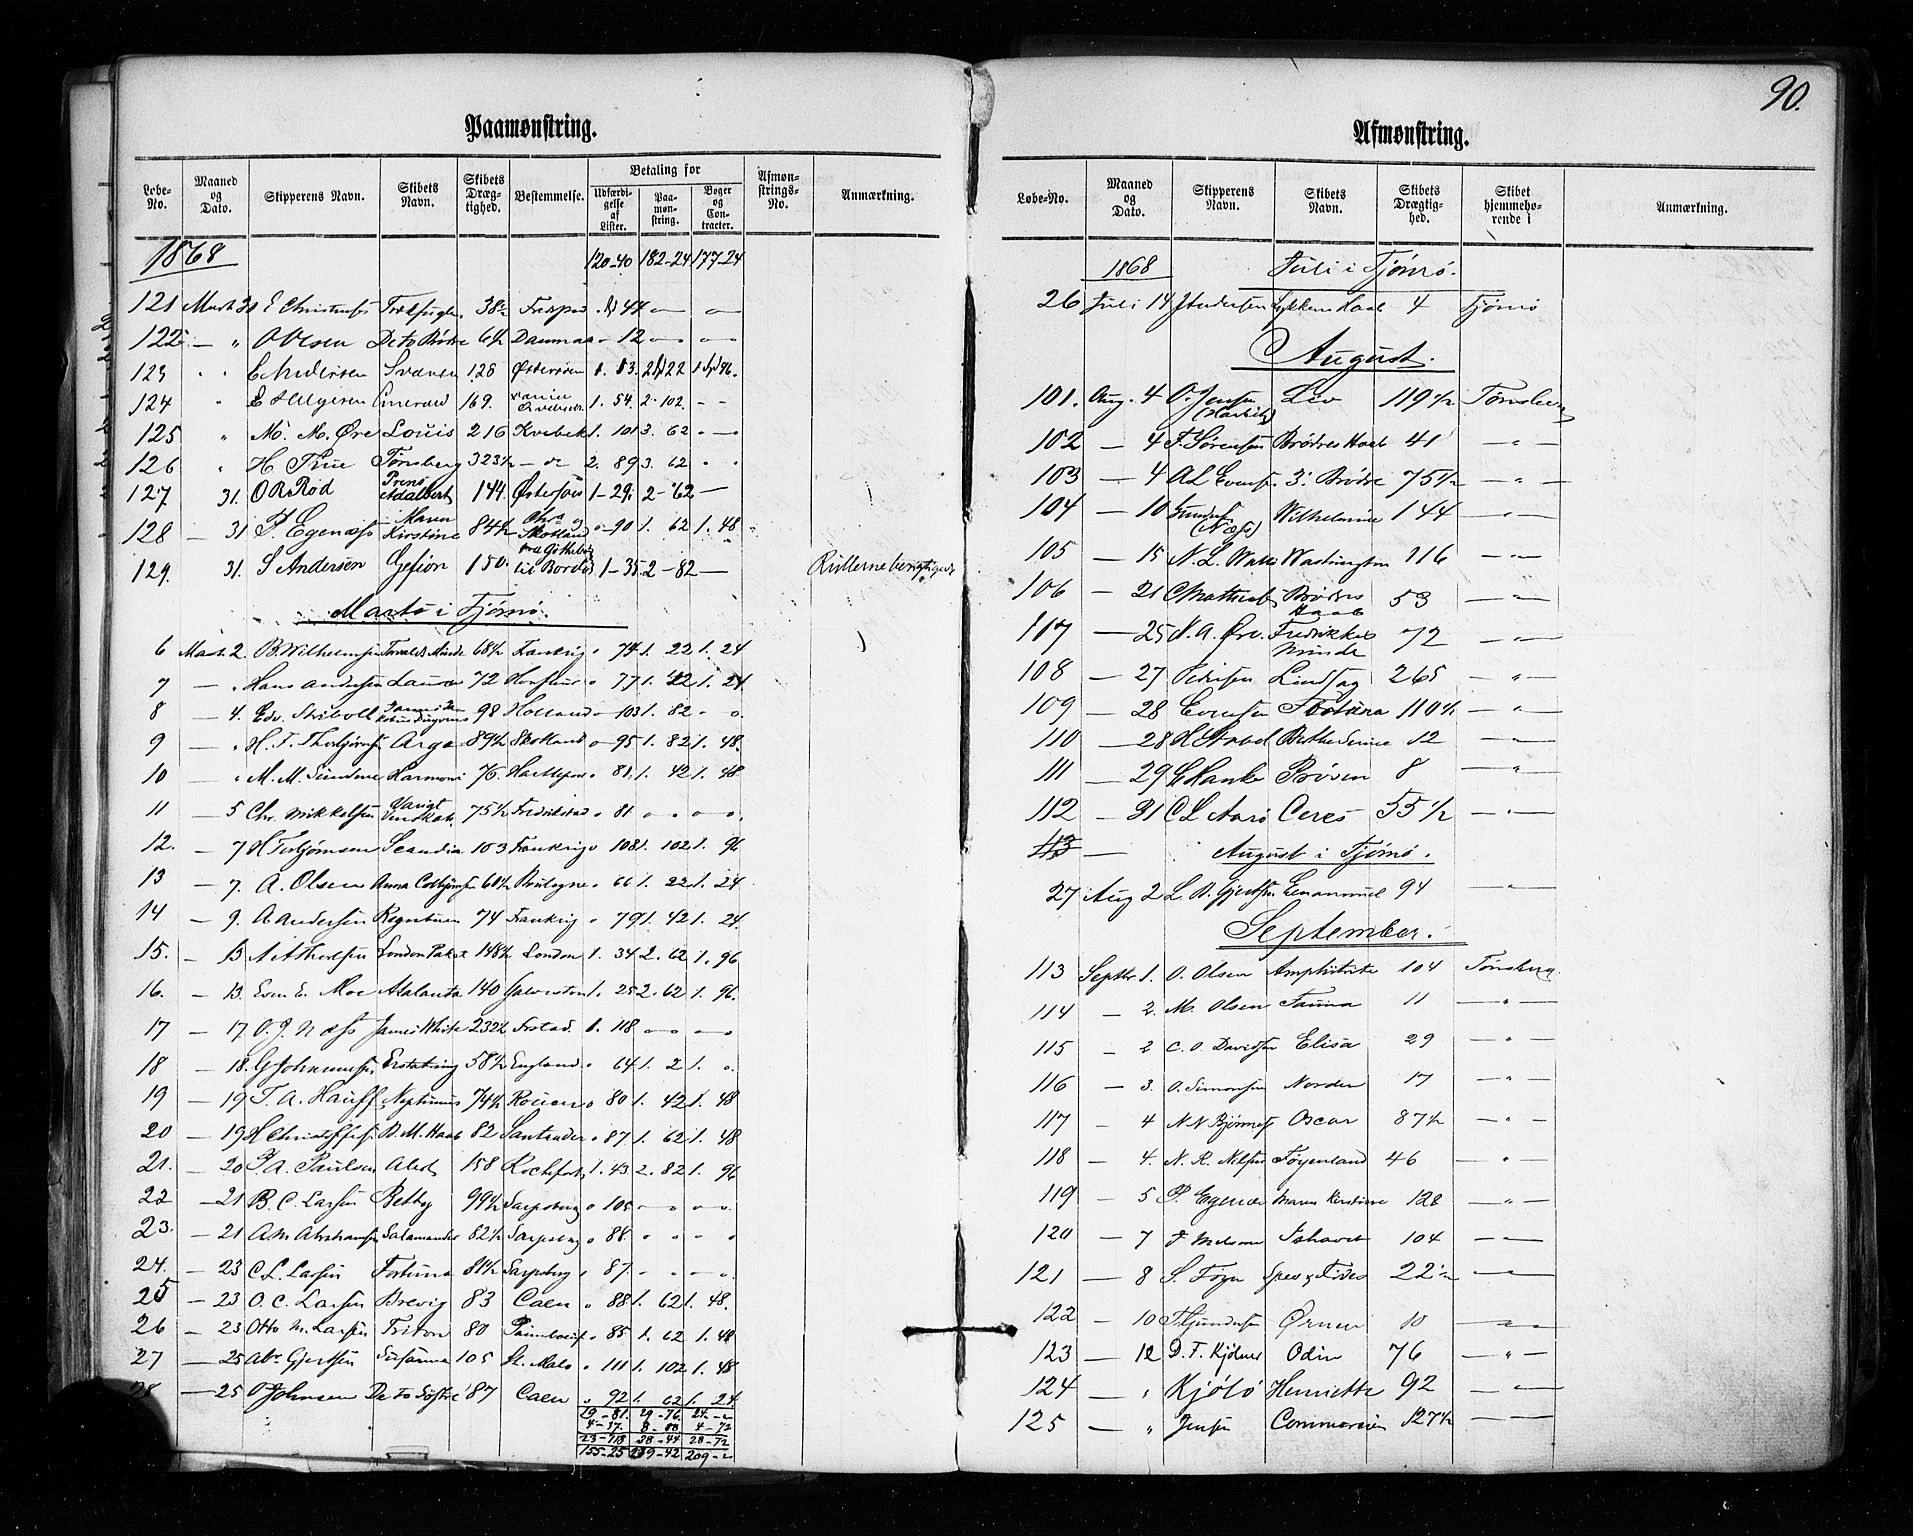 90.
Paamønstring.
Løbe-No. Maaned og Dato. Skipperens Navn. Skibets Navn. Skibets Drægtighed. Bestemmelse. Betaling for Udfærdigelse af Lister. Paamønstring. Bøger og Contracter. Afmønstrings-No. Anmærkning.
1868 120-40 182-24 177-24
121 Marts 30 E Christensen 38½
122 — " Olsen De to Brødre 64½ Danmark - 12 - " - "
123 " " C Andersen Svanen 128 Østersøen
124 " E Helgesen Emerald 169. 1. 54. 2. 102. - -
125 " M. M. Øre Louis 216 Kvebek 1. 101 3. 62 " - "
126 " H Thue Tønsberg 323½ - do 2. 89 3. 62 " "
127 31. O R Rød Prins Adalbert 144 Østersøen 1 - 29 2 - 62 —
128 - 31 P. Egenæss Maren Kirstine 84½ Skotland " - 90 1. 62 1. 48
129. 31. S Andersen Gefion 150 fra Gøtheborg til Bordeaux 1 - 35 2 - 82 —
Marts i Tjømø.
6 Marts 2. B. Wilhelmsen Torvalds Minde 68½ Frankrig " 74 1. 22 1. 24
7 — " Hans Andersen Laura 72 Honfleur " 77 1. 42 1. 24
8 — 4. Edv. Stibolt 98 Holland " 103 1. 82 " "
9 — " H. F. Thorbjørnsen Arga 89½ Skotland " 95 1. 82 1. 48.
10 — " M. M. Sundene Harmoni 76 Hartlepool " 81 1. 42 1. 48
11 5 Chr. Mikkelsen Varigt Vendskab. 75½ Fredrikstad " 81 " " " "
12. — 7 H Torbjørnsen Scandia 103 Frankrig " 108 1. 102 1. 96
13 — 7. A. Olsen Anna Colbjørnsen 68½ Boulogne " 66 1. 22 1. 24
14 — 9. A. Andersen Regnbuen 74 Frankrig " 79 1. 42 1. 24.
15. — 13 London Paket 148½ London 1. 34 2. 62 1. 96
16. — 13. Even E. Moe Atalanta 140 Galveston 1. 25 2. 62 1. 96.
17 — 17. O. J. Næss James White 232½ Frstad. 1. 118 - " - "
18 — 18. G Johannesen Erstatning 58½ England " 64 1. 2 1. "
19 — 19 T. A. Hauff Neptunus 74½ Rouen " 80 1. 42 1. 48
20 — 19 H Christoffersen B. M. Haab 82 Santander " 87 1. 62 1. 48
21. — 20 P. A. Paulsen Alert 158 Rochefort 1. 43 2. 82 1. 96
22 — 21 B. C. Larsen Betty 99½ Sarpsborg " 105 " - " "
23. — 21 A. M Abrahamsen Salamander 82½ Sarpsborg " 88 " " " "
24. — 23 C. L. Larsen Fortuna 81½ Sarpsborg " 87 - " - "
25 — 23 O. C. Larsen Brevig 83 Caen " 88 1. 62 1. 48.
26 — 23 Otto M. Larsen Triton 80 Paimboeuf " 85 1. 62 1. 48
27 — 25 Abr Gjertsen Susanna 105 St. Malo " 111 1. 102 1. 48
28 — 25 O Johnsen De to Søstre 87 Caen " 92 1. 62 1. 24
19 - 81. 29 - 76 24 - "
4 - 37. 8 - 88 4 - 72
23 - 118 38 - 44 28 - 72
155 - 25 219 - 42 209 - "
Afmønstring.
Løbe-No. Maaned og Dato. Skipperens Navn. Skibets Navn. Skibets Drægtighed. Skibet hjemmehørende i Anmærkning.
1868 Juli i Tjømø.
26 Juli 14 J Andersen Lykkens Haab 4 Tjømø
August.
101. Aug. 4 O. Jensen Leo 119½ Tønsberg
102 — 4 F. Sørensen Brødres Haab 41 — " —
103 — 4 A L Evensen 3: Brødre 75½ — " —
104 — 10 Gundersen (Næss) Wilhelmine 144 — " —
105 — 15 N. L. Washington 116 — " —
106 — 21 C Mathiesen Brødres Haab 53 — " —
107 — 25 N. A. Øre. Fredrikkes Minde 72 — " —
108 — 27 Pedersen Lindsay 265 — " —
109 — 28 Evensen 110½ — " —
110 — 28 H Strøm Berthe Serine 12 — " —
111 — 29 C Hanke Prøven 8 — " —
112 — 31 C L Aarø Ceres 55½ — " —
113 — August i Tjømø.
27 Aug 2 L. B. Gjertsen Emanuel 94 — " —
September.
113 Septbr 1. O. Olsen Amphitrite 104 Tønsberg.
114 — 2. M. Olsen Fauna 11 — " —
115 — 2 C. O. Davidsen Elisa 29 — " —
116 — 3. O. Simonsen Norden 17 — " —
117 — 4 N N Bjønnes Oscar 87½ — " —
118 — 4. N. R. Nilsen Føyenland 46 — " —
119 — 5 P. Egenæs Maren Kirstine 128 — " —
120 — 7 F Melsom Ishavet 104 — " —
121 — 8 S. Føyn Spes & Fides 22½ — " —
122 — 10 T Gundersen Ørnen 10 — " —
123 — 12 D. F. Kjølner Odin 76 — " —
124 — " Kjølø Henriette 92 — " —
125 " Jensen Commercien 127½ — " —